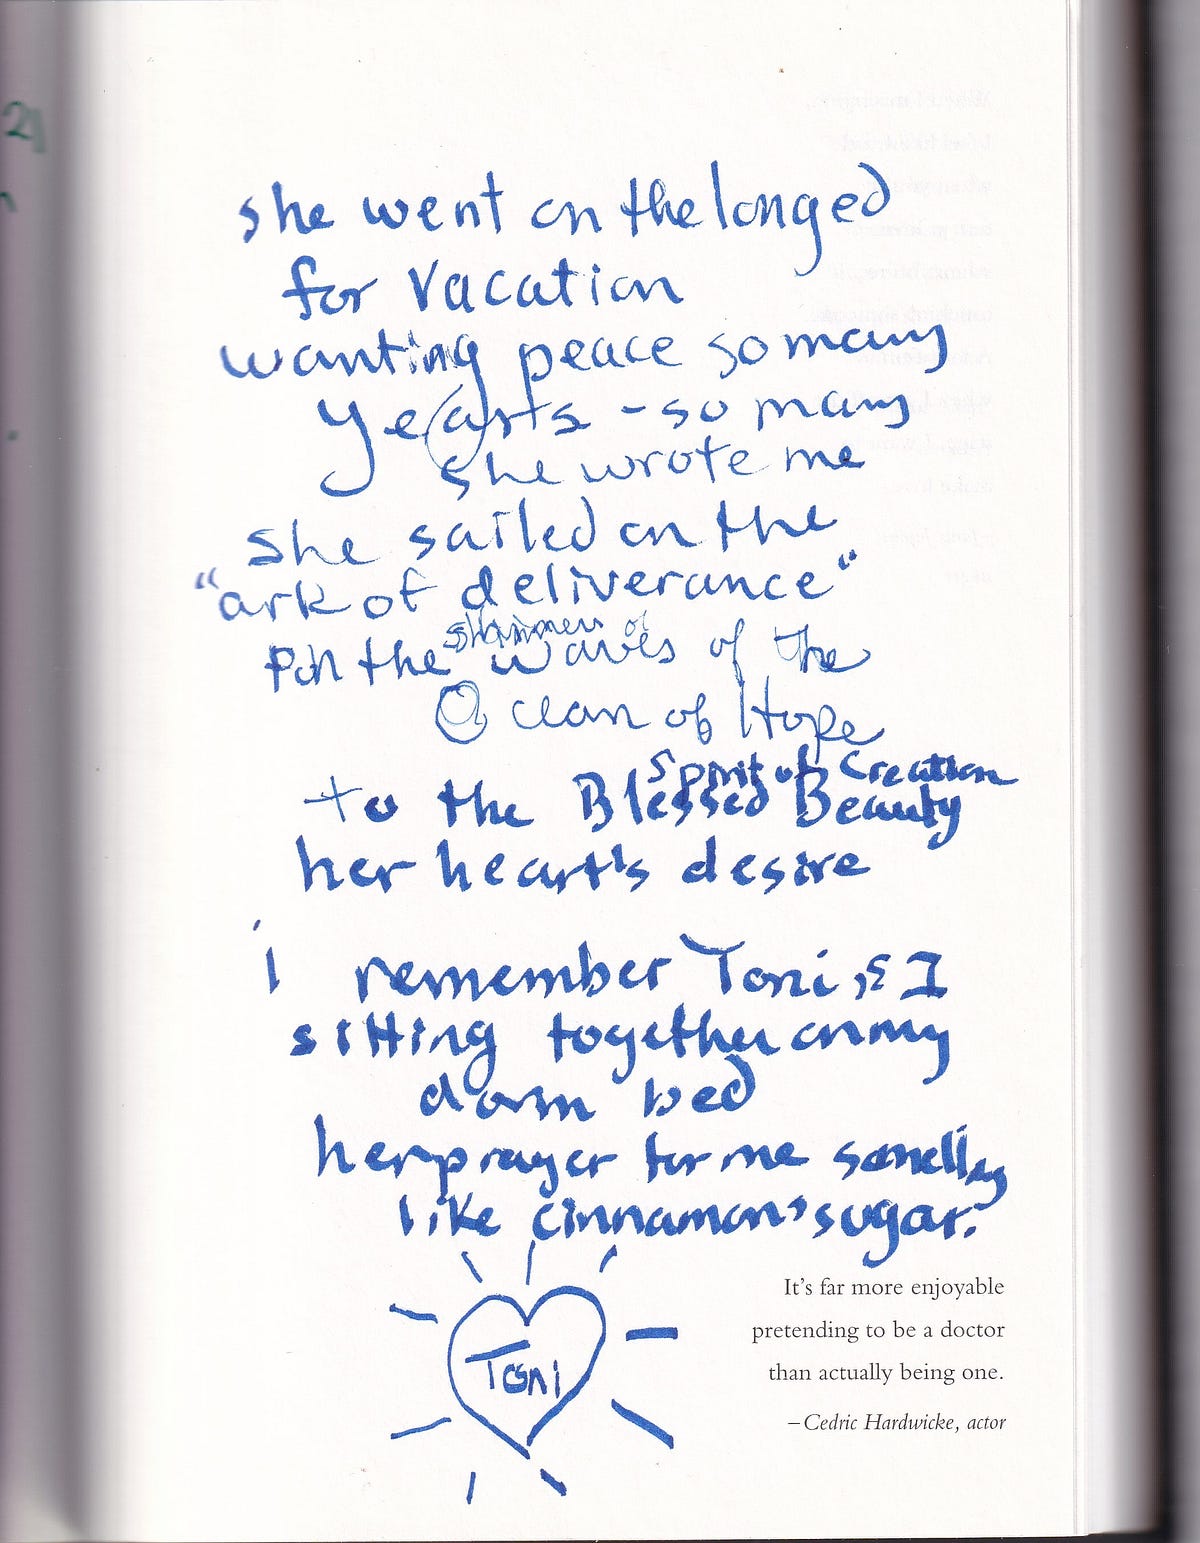 she went on the longed
for vacation
wanting peace so many
years - so many
she wrote me
she sailed on the
"ark of deliverance"
on the shimmer of waves of the
Ocean of Hope
Spirit of Creation
to the Blessed Beauty
her heart's desire
i remember Toni, & I
sitting together on my
dorm bed
her prayer for me smelling
like cinnamon & sugar.
Toni
It's far more enjoyable
pretending to be a doctor
than actually being one.
–Cedric Hardwicke, actor